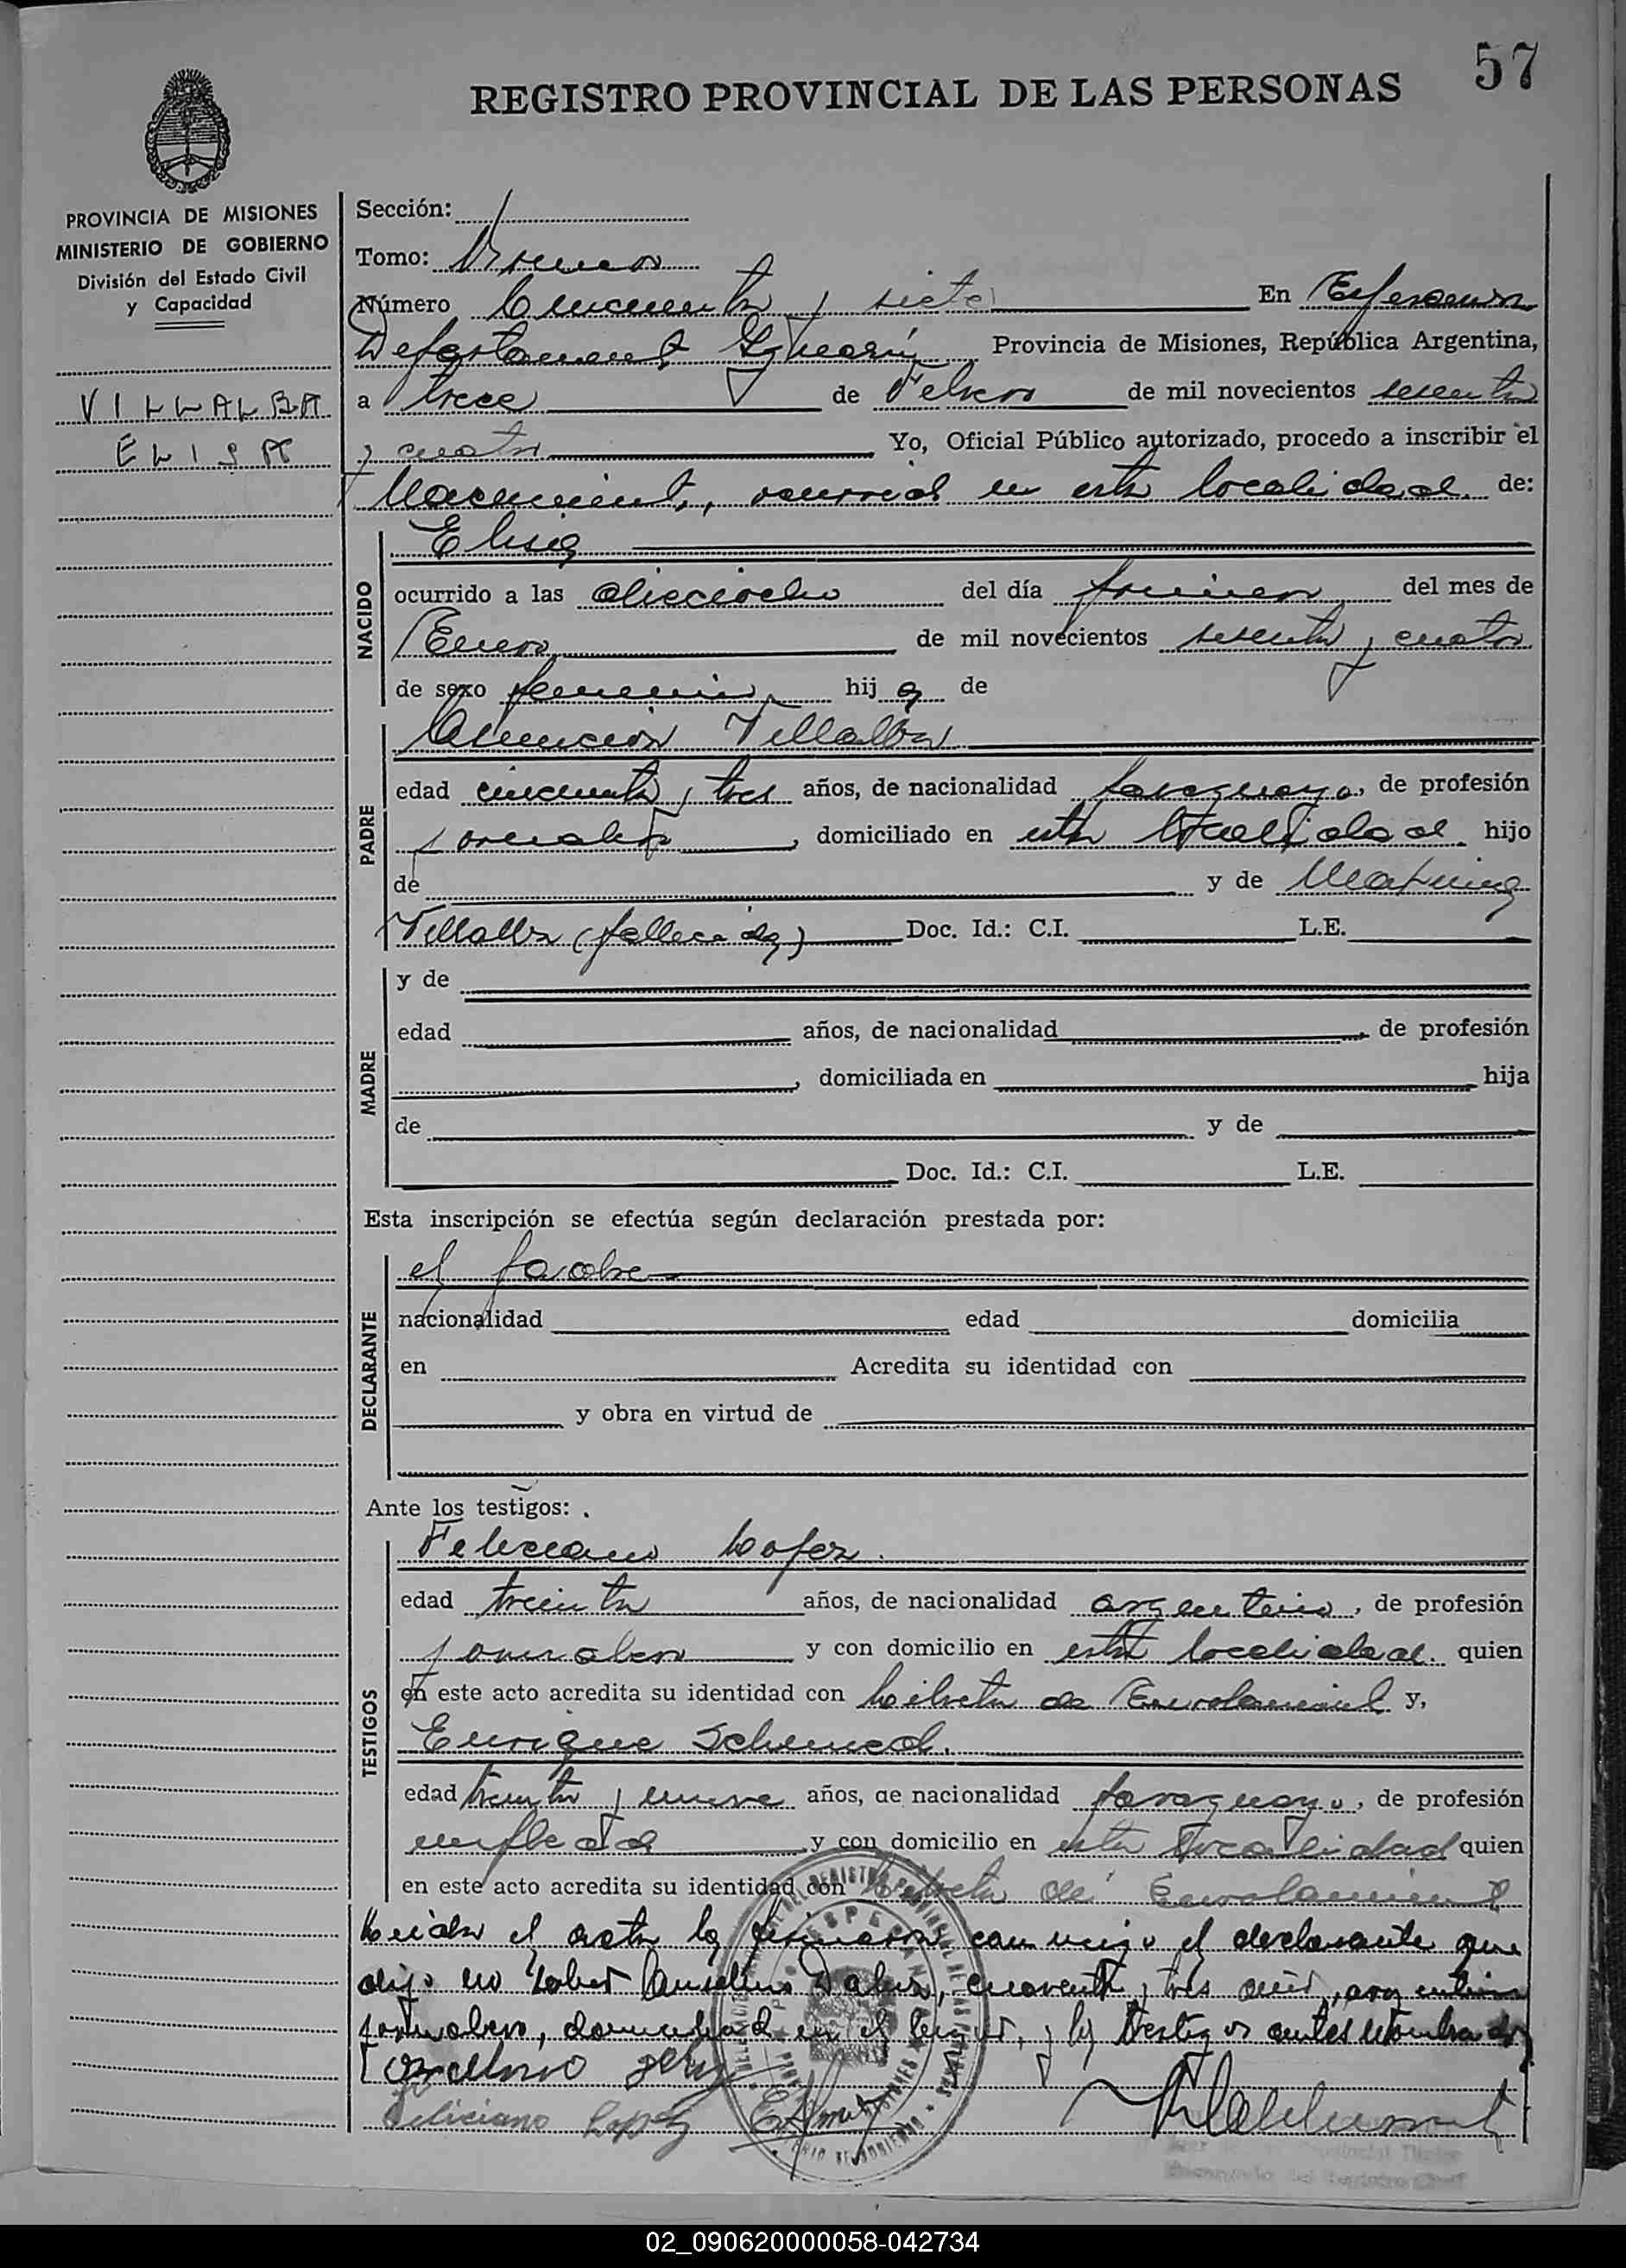 57
REGISTRO PROVINCIAL DE LAS PERSONAS
PROVINCIA DE MISIONES
MINISTERIO DE GOBIERNO
División del Estado Civil
y Capacidad
VILLALBA
ELISA
Sección:
Tomo: Primero
Número Cincuenta y siete En Esperanza
Departamento Iguazú Provincia de Misiones, República Argentina,
a trece de Febrero de mil novecientos sesenta
y cuatro Yo, Oficial Público autorizado, procedo a inscribir el
Nacimiento, ocurrido en esta localidad de:
NACIDO
Elisa
ocurrido a las dieciocho del día primero del mes de
Enero de mil novecientos sesenta y cuatro
de sexo femenino hij a de
PADRE
Asuncion Villalba
edad cincuenta y tres años, de nacionalidad paraguaya, de profesión
jornalero, domiciliado en esta localidad hijo
de y de Maxima
Villalba (fallecida) Doc. Id.: C.I. L.E.
MADRE
y de
edad años, de nacionalidad , de profesión
, domiciliada en hija
de y de
Doc. Id.: C.I. L.E.
Esta inscripción se efectúa según declaración prestada por:
DECLARANTE
el padre
nacionalidad edad domicilia
en Acredita su identidad con
y obra en virtud de
Ante los testigos:
TESTIGOS
Feliciano Lopez
edad treinta años, de nacionalidad argentino, de profesión
jornalero y con domicilio en esta localidad quien
en este acto acredita su identidad con Libreta de Enrolamiento y,
Enrique Schmed
edad treinta y nueve años, de nacionalidad paraguayo, de profesión
empleado y con domicilio en esta localidad quien
en este acto acredita su identidad con Libreta de Enrolamiento
Leida el acta la firmaron conmigo el declarante que
dijo no saber Anselmo, cuarenta y tres años, argentino
jornalero, domiciliado en el lugar, y los testigos antes nombrados
Feliciano Lopez
02_090620000058-042734